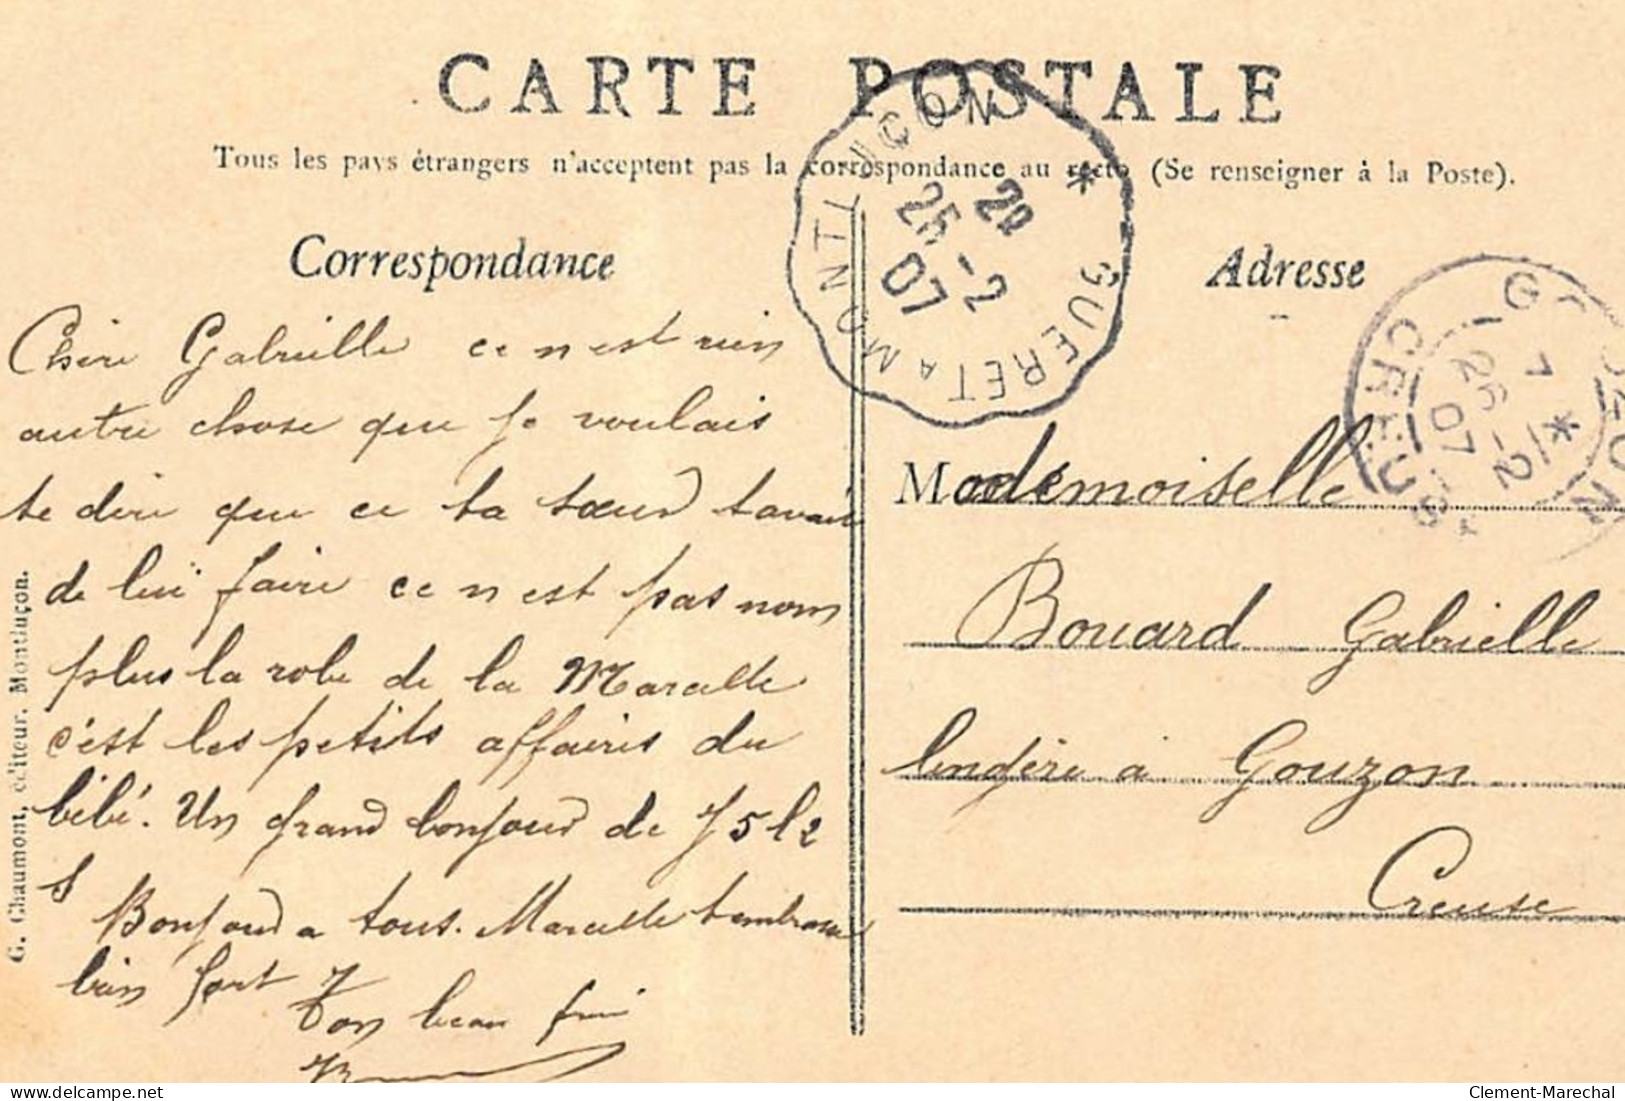 CARTE POSTALE
Tous les pays étrangers n'acceptent pas la correspondance au recto (Se renseigner à la Poste).
Correspondance
Chère Gabrielle ce n est rien
autre chose que je voulais
te dire que ce ta sœur tavait
de lui faire ce n est pas nom
plus la robe de la Marcelle
c'est les petits affaires du
bébé. Un grand bonjour de
Bonjour a tous. Marcelle t embrasse
bien fort
Ton beau frère
G. Chaumont, éditeur. Montluçon.
GUERET A MONTLUÇON
25 -2
07
Adresse
GOUZON
CREUSE
7
26 -2
07
Mademoiselle
Bouard Gabrielle
lingère à Gouzon
Creuse
Clement-Marechal